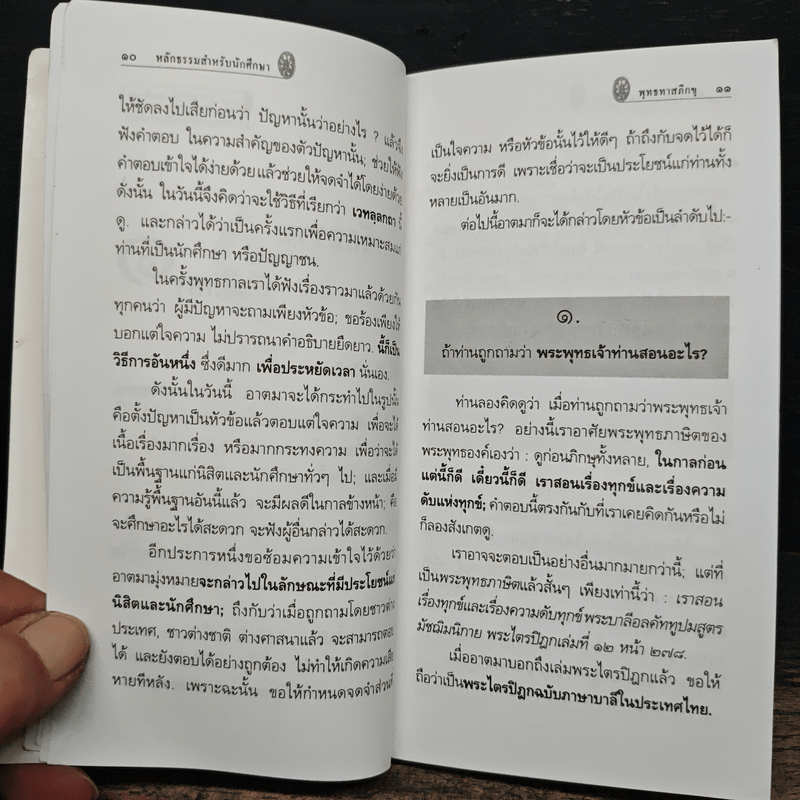 ๑๐ หลักธรรมสำหรับนักศึกษา
ให้ชัดลงไปเสียก่อนว่า ปัญหานั้นว่าอย่างไร ? แล้วจึง
ฟังคำตอบ ในความสำคัญของตัวปัญหานั้น; ช่วยให้ฟัง
คำตอบเข้าใจได้ง่ายด้วย แล้วช่วยให้จดจำได้โดยง่ายด้วย
ดังนั้น ในวันนี้จึงคิดว่าจะใช้วิธีที่เรียกว่า เวทลฺลกถา นี้
ดู. และกล่าวได้ว่าเป็นครั้งแรกเพื่อความเหมาะสมแก่
ท่านที่เป็นนักศึกษา หรือปัญญาชน.
ในครั้งพุทธกาลเราได้ฟังเรื่องราวมาแล้วด้วยกัน
ทุกคนว่า ผู้มีปัญหาจะถามเพียงหัวข้อ; ขอร้องเพียงให้
บอกแต่ใจความ ไม่ปรารถนาคำอธิบายยืดยาว. นี้ก็เป็น
วิธีการอันหนึ่ง ซึ่งดีมาก เพื่อประหยัดเวลา นั่นเอง.
ดังนั้นในวันนี้ อาตมาจะได้กระทำไปในรูปนั้น
คือตั้งปัญหาเป็นหัวข้อแล้วตอบแต่ใจความ เพื่อจะได้
เนื้อเรื่องมากเรื่อง หรือมากกระทงความ เพื่อว่าจะได้
เป็นพื้นฐานแก่นิสิตและนักศึกษาทั่วๆ ไป; และเมื่อมี
ความรู้พื้นฐานอันนี้แล้ว จะมีผลดีในกาลข้างหน้า; คือ
จะศึกษาอะไรได้สะดวก จะฟังผู้อื่นกล่าวได้สะดวก.
อีกประการหนึ่งขอซ้อมความเข้าใจไว้ด้วยว่า
อาตมามุ่งหมายจะกล่าวไปในลักษณะที่มีประโยชน์แก่
นิสิตและนักศึกษา; ถึงกับว่าเมื่อถูกถามโดยชาวต่าง
ประเทศ, ชาวต่างชาติ ต่างศาสนาแล้ว จะสามารถตอบ
ได้ และยังตอบได้อย่างถูกต้อง ไม่ทำให้เกิดความเสีย
หายทีหลัง. เพราะฉะนั้น ขอให้กำหนดจดจำส่วนที่
พุทธทาสภิกขุ ๑๑
เป็นใจความ หรือหัวข้อนั้นไว้ให้ดีๆ ถ้าถึงกับจดไว้ได้ก็
จะยิ่งเป็นการดี เพราะเชื่อว่าจะเป็นประโยชน์แก่ท่านทั้ง
หลายเป็นอันมาก.
ต่อไปนี้อาตมาก็จะได้กล่าวโดยหัวข้อเป็นลำดับไป:-
๑.
ถ้าท่านถูกถามว่า พระพุทธเจ้าท่านสอนอะไร?
ท่านลองคิดดูว่า เมื่อท่านถูกถามว่าพระพุทธเจ้า
ท่านสอนอะไร? อย่างนี้เราอาศัยพระพุทธภาษิตของ
พระพุทธองค์เองว่า : ดูก่อนภิกษุทั้งหลาย, ในกาลก่อน
แต่นี้ก็ดี เดี๋ยวนี้ก็ดี เราสอนเรื่องทุกข์และเรื่องความ
ดับแห่งทุกข์; คำตอบนี้ตรงกันกับที่เราเคยคิดกันหรือไม่
ก็ลองสังเกตดู.
เราอาจจะตอบเป็นอย่างอื่นมากมายกว่านี้; แต่ที่
เป็นพระพุทธภาษิตแล้วสั้นๆ เพียงเท่านี้ว่า : เราสอน
เรื่องทุกข์และเรื่องความดับทุกข์ พระบาลีอลคัททูปมสูตร
มัชฌิมนิกาย พระไตรปิฎกเล่มที่ ๑๒ หน้า ๒๗๘.
เมื่ออาตมาบอกถึงเล่มพระไตรปิฎกแล้ว ขอให้
ถือว่าเป็นพระไตรปิฎกฉบับภาษาบาลีในประเทศไทย.